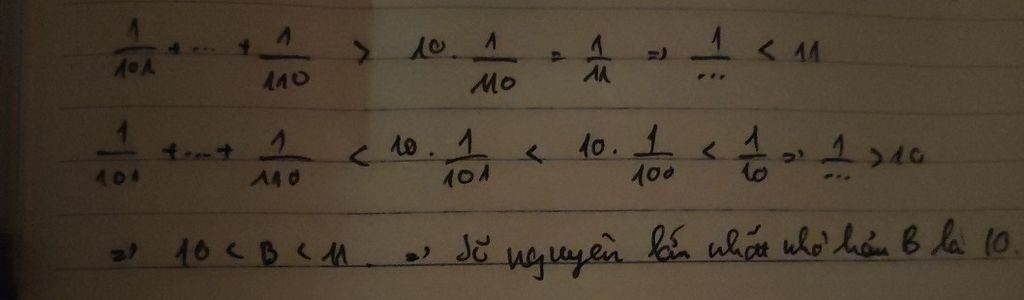 1/101 + ... + 1/110 > 10 . 1/110 = 1/11 => 1/... < 11
1/101 + ... + 1/110 < 10 . 1/101 < 10 . 1/100 < 1/10 => 1/... > 10
=> 10 < B < 11. => Số nguyên lớn nhất nhỏ hơn B là 10.